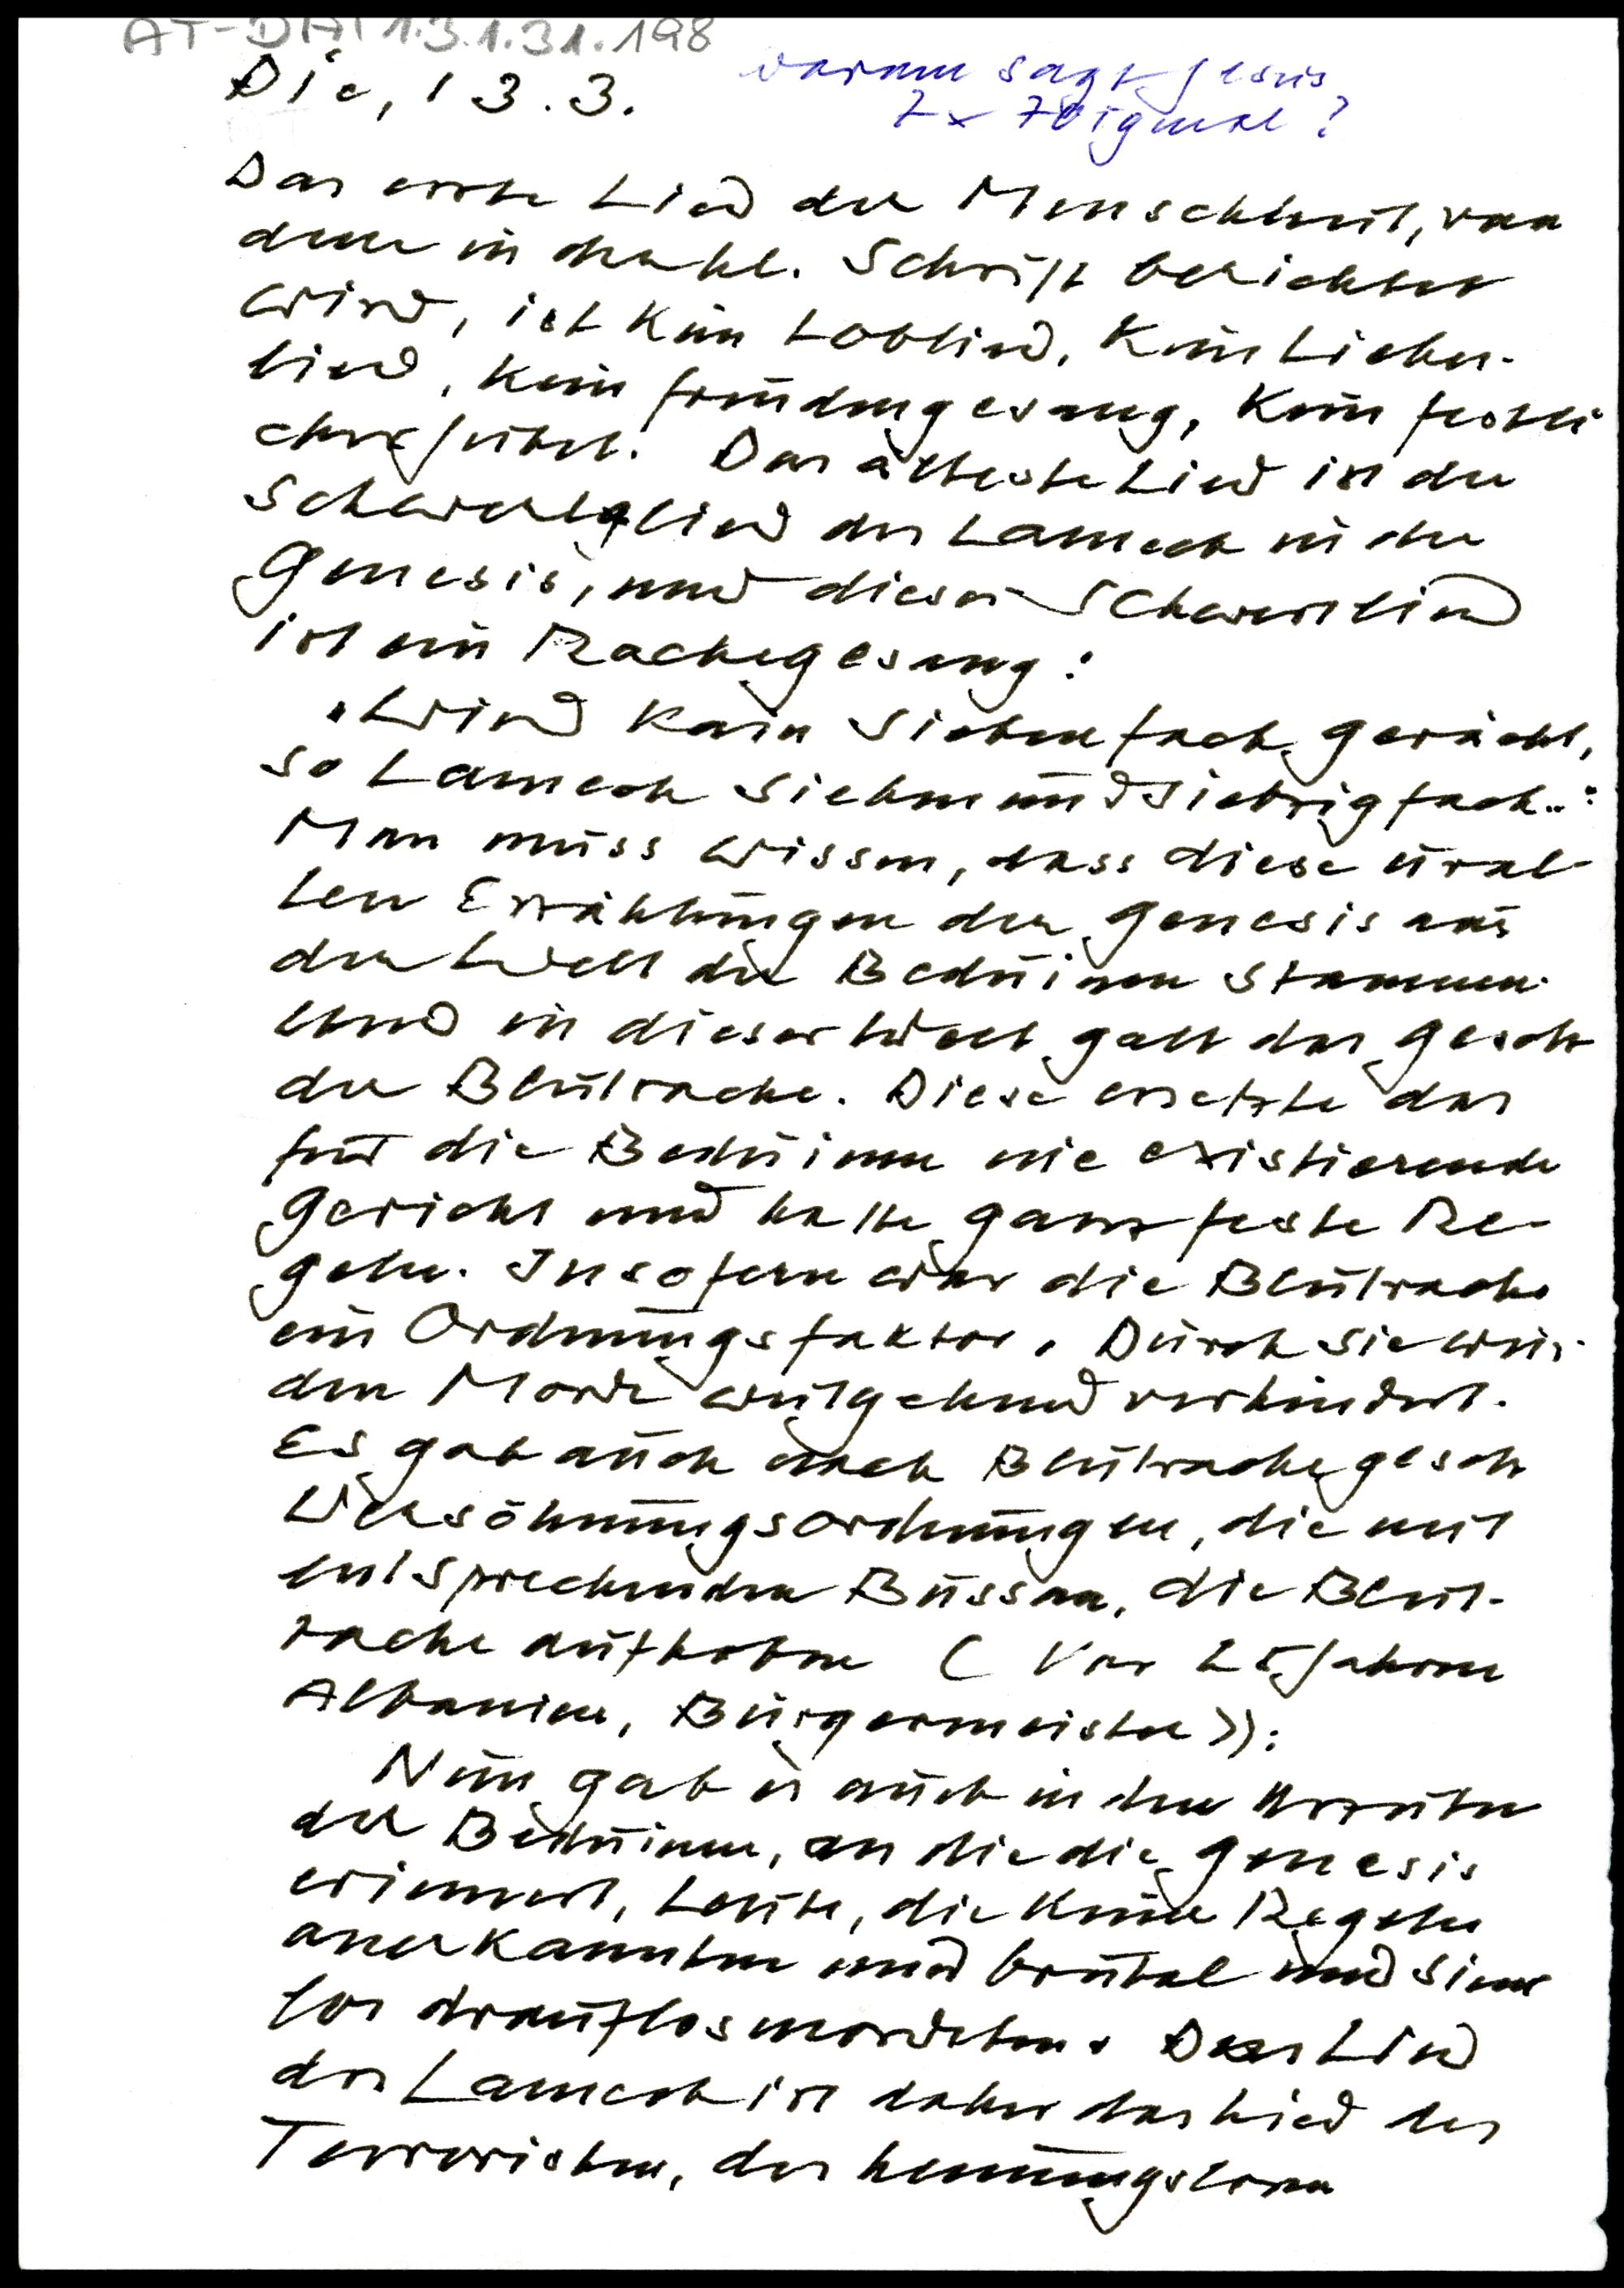 AT-DAI 1.3.1.31.198
Die, 13.3.
warum sagt Jesus
7x 70igmal?
Das erste Lied der Menschheit, von
dem in der hl. Schrift berichtet
wird, ist kein Loblied, kein Liebes-
lied, kein Freudengesang, kein festli
cher Jubel. Das älteste Lied ist das
Schwertlied des Lamech in der
Genesis, und dieses Schwertlied
ist ein Rachegesang:
"Wird Kain siebenfach gerächt,
so Lamech siebenundsiebzigfach..:
Man muss wissen, dass diese ural-
ten Erzählungen der Genesis aus
der Welt der Beduinen stammen.
Und in dieser Welt galt das Gesetz
der Blutrache. Diese ersetzte das
für die Beduinen nie existierende
Gericht und hatte ganz feste Re-
geln. Insofern war die Blutrache
ein Ordnungsfaktor. Durch sie wur-
den Morde weitgehend verhindert.
Es gab auch nach Blutrachegesetz
Versöhnungsordnungen, die mit
entsprechenden Bussen, die Blut-
rache aufhoben (Vor 25 Jahren
Albanien, Bürgermeister)):
Nun gab es auch in den Urzeiten
der Beduinen, an die die Genesis
erinnert, Leute, die keine Regeln
anerkannten und brutal und sinn
los drauflosmordeten. Das Lied
des Lamech ist daher das Lied des
Terroristen, des hemmungslosen